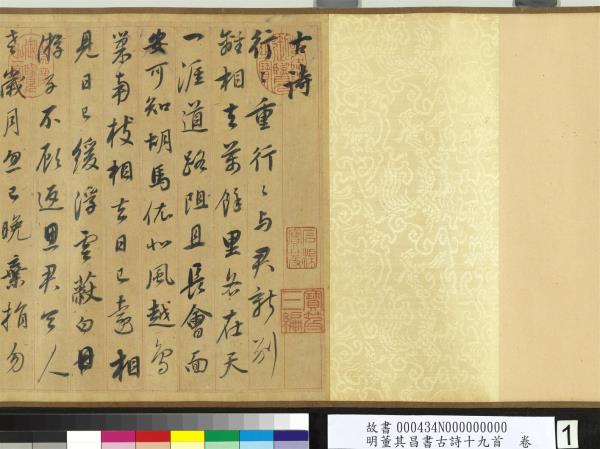 古詩
行〻重行〻与君新别
離相去萬餘里各在天
一涯道路阻且長會面
安可知胡馬依北風越鳥
巢南枝相去日已遠相
見日已緩浮雲蔽白日
游子不顧返思君令人
老歲月忽已晚棄捐勿
石渠寶笈
寶笈三編
故書 000434N000000000
明董其昌書古詩十九首 卷
1